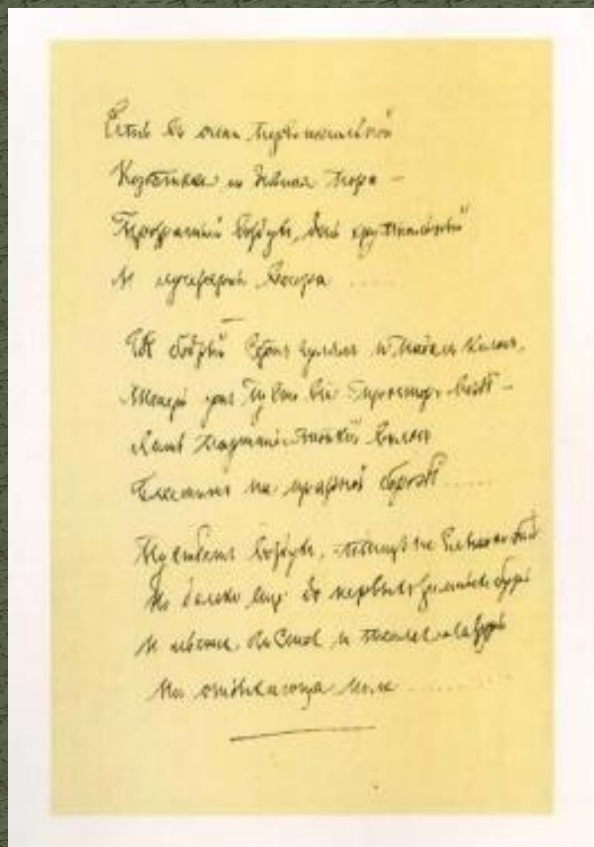 Есть въ осени первоначальной
Короткая но дивная пора —
Прозрачный воздухъ, день хрустальный
И лучезарны вечера .....
Где бодрый серпъ гулялъ и падалъ колосъ,
Теперь ужъ пусто все просторъ везде —
Лишь паутины тонкій волосъ
на праздной борозде .....
Пустеетъ воздухъ, птицъ не слышно боле
Но далеко еще до первыхъ зимнихъ бурь
И льется и теплая лазурь
На поле ........